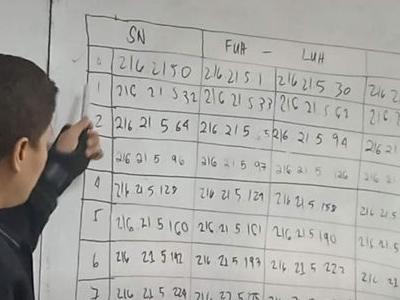 SN FUA - LUA
0 216 21 5 0 216 21 5 1 216 21 5 30 216 21
1 216 21 5 32 216 21 5 33 216 21 5 62 216
2 216 21 5 64 216 21 5 216 21 5 94 216 21
216 21 5 96 216 21 5 97 216 21 5 126 216 21
4 216 21 5 128 216 21 5 129 216 21 5 158 216 21 5
5 216 21 5 160 216 21 5 161 216 21 5 190 216 21 5
6 216 21 5 192 216 21 5 193 216 21 5 222 216 21
7 216 21 5 224